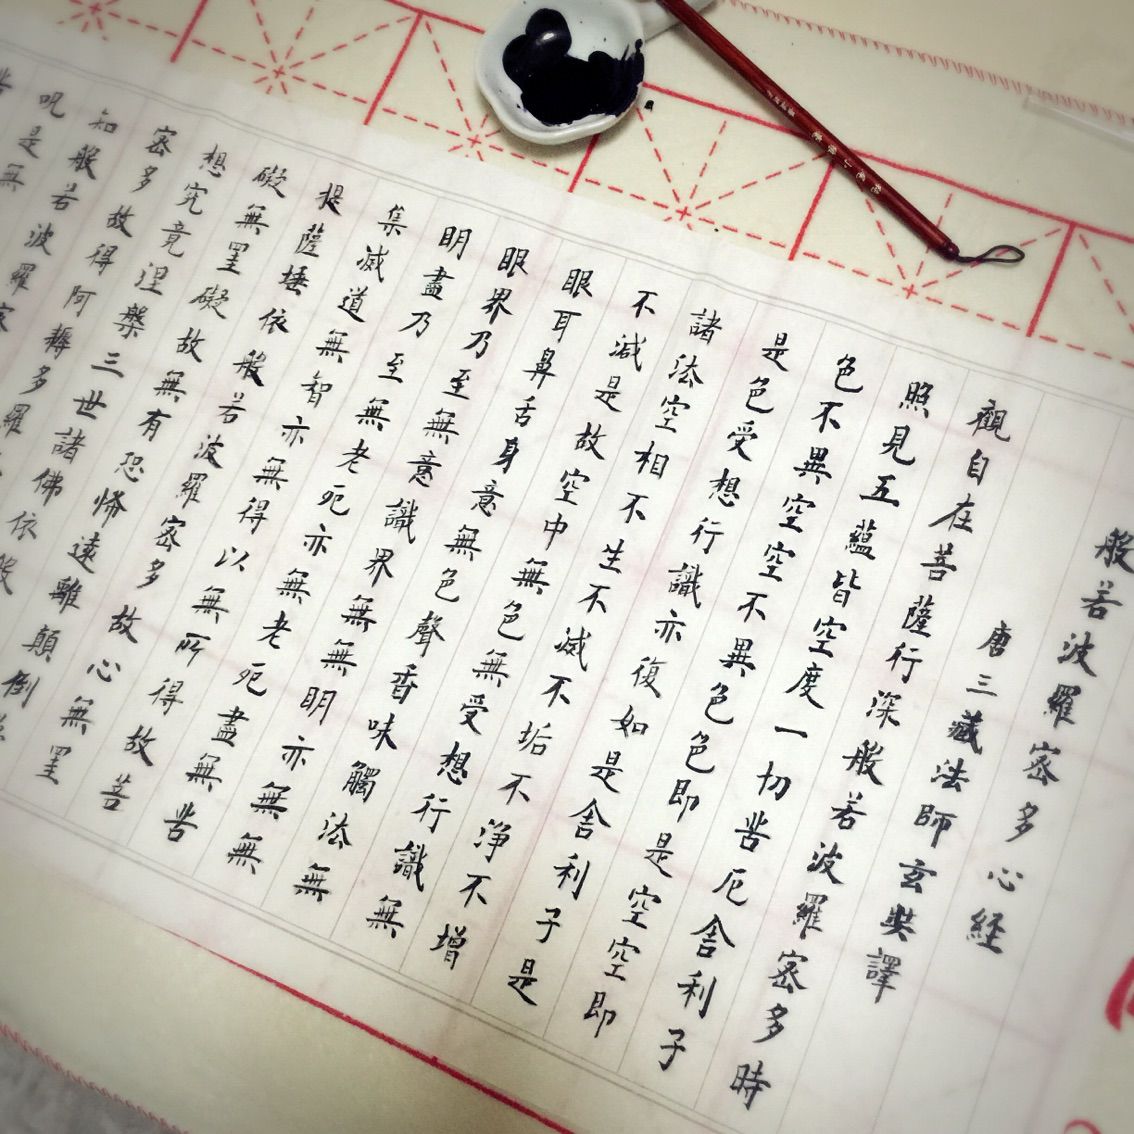 般若波羅密多心経
唐三藏法師玄奘譯
觀自在菩薩行深般若波羅密多時
照見五蘊皆空度一切苦厄舍利子
色不異空空不異色色即是空空即
是色受想行識亦復如是舍利子是
諸法空相不生不滅不垢不淨不增
不減是故空中無色無受想行識無
眼耳鼻舌身意無色聲香味觸法無
眼界乃至無意識界無無明亦無無
明盡乃至無老死亦無老死盡無苦
集滅道無智亦無得以無所得故菩
提薩埵依般若波羅密多故心無罣
礙無罣礙故無有恐怖遠離顛倒
想究竟涅槃三世諸佛依般
密多故得阿耨多羅
知般若波羅密
呪是無